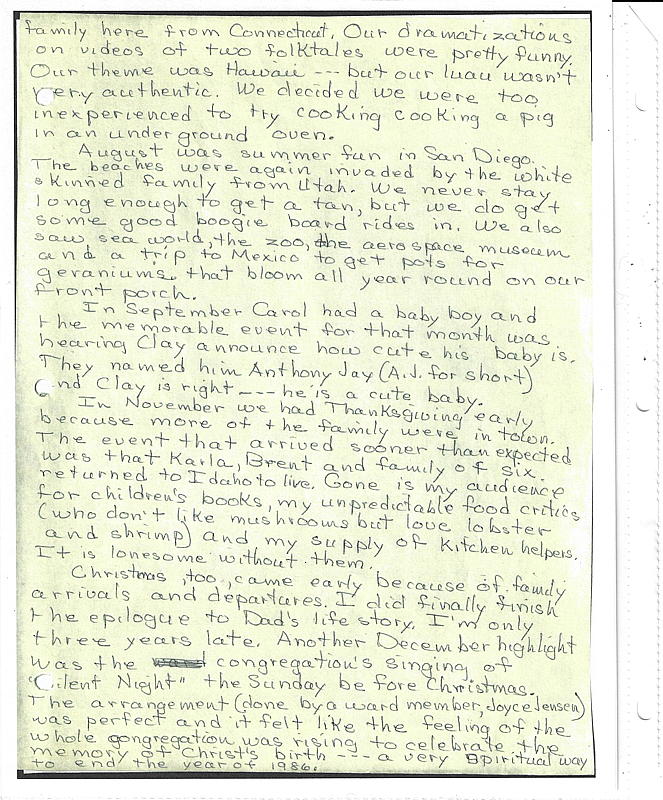 family here from Connecticut. Our dramatizations
on videos of two folktales were pretty funny.
Our theme was Hawaii --- but our luau wasn't
very authentic. We decided we were too
inexperienced to try cooking cooking a pig
in an underground oven.
August was summer fun in San Diego.
The beaches were again invaded by the white
skinned family from Utah. We never stay
long enough to get a tan, but we do get
some good boogie board rides in. We also
saw sea world, the zoo, the aerospace museum
and a trip to Mexico to get pots for
geraniums that bloom all year round on our
front porch.
In September Carol had a baby boy and
the memorable event for that month was
hearing Clay announce how cute his baby is.
They named him Anthony Jay (A.J. for short)
and Clay is right --- he is a cute baby.
In November we had Thanksgiving early
because more of the family were in town.
The event that arrived sooner than expected
was that Karla, Brent and family of six
returned to Idaho to live. Gone is my audience
for children's books, my unpredictable food critics
(who don't like mushrooms but love lobster
and shrimp) and my supply of kitchen helpers.
It is lonesome without them.
Christmas, too, came early because of family
arrivals and departures. I did finally finish
the epilogue to Dad's life story. I'm only
three years late. Another December highlight
was the congregation's singing of
"Silent Night" the Sunday before Christmas.
The arrangement (done by a ward member, Joyce Jensen)
was perfect and it felt like the feeling of the
whole congregation was rising to celebrate the
memory of Christ's birth --- a very spiritual way
to end the year of 1986.